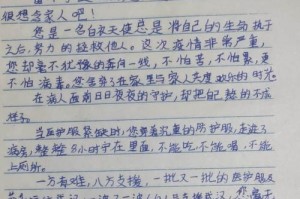 很想念家人吧!
您是一名白衣天使总是将自己的生与死于
之后,努力的拯救他人。这次疫情非常严重,
您却毫不犹豫的奔向一线,不怕苦,不怕累,更
不怕病毒。您坐弃在家里与家人失度欢乐的时光
在病人面前日日夜夜的守护,却把自己整的不成
样子。
当防护服紧缺时,您穿着沉重的防护服,走进了
病房,整整8小时守在里面,不能吃、不能喝、不能
上厕所。
一方有难,八方支援,一批又一批的医护服及